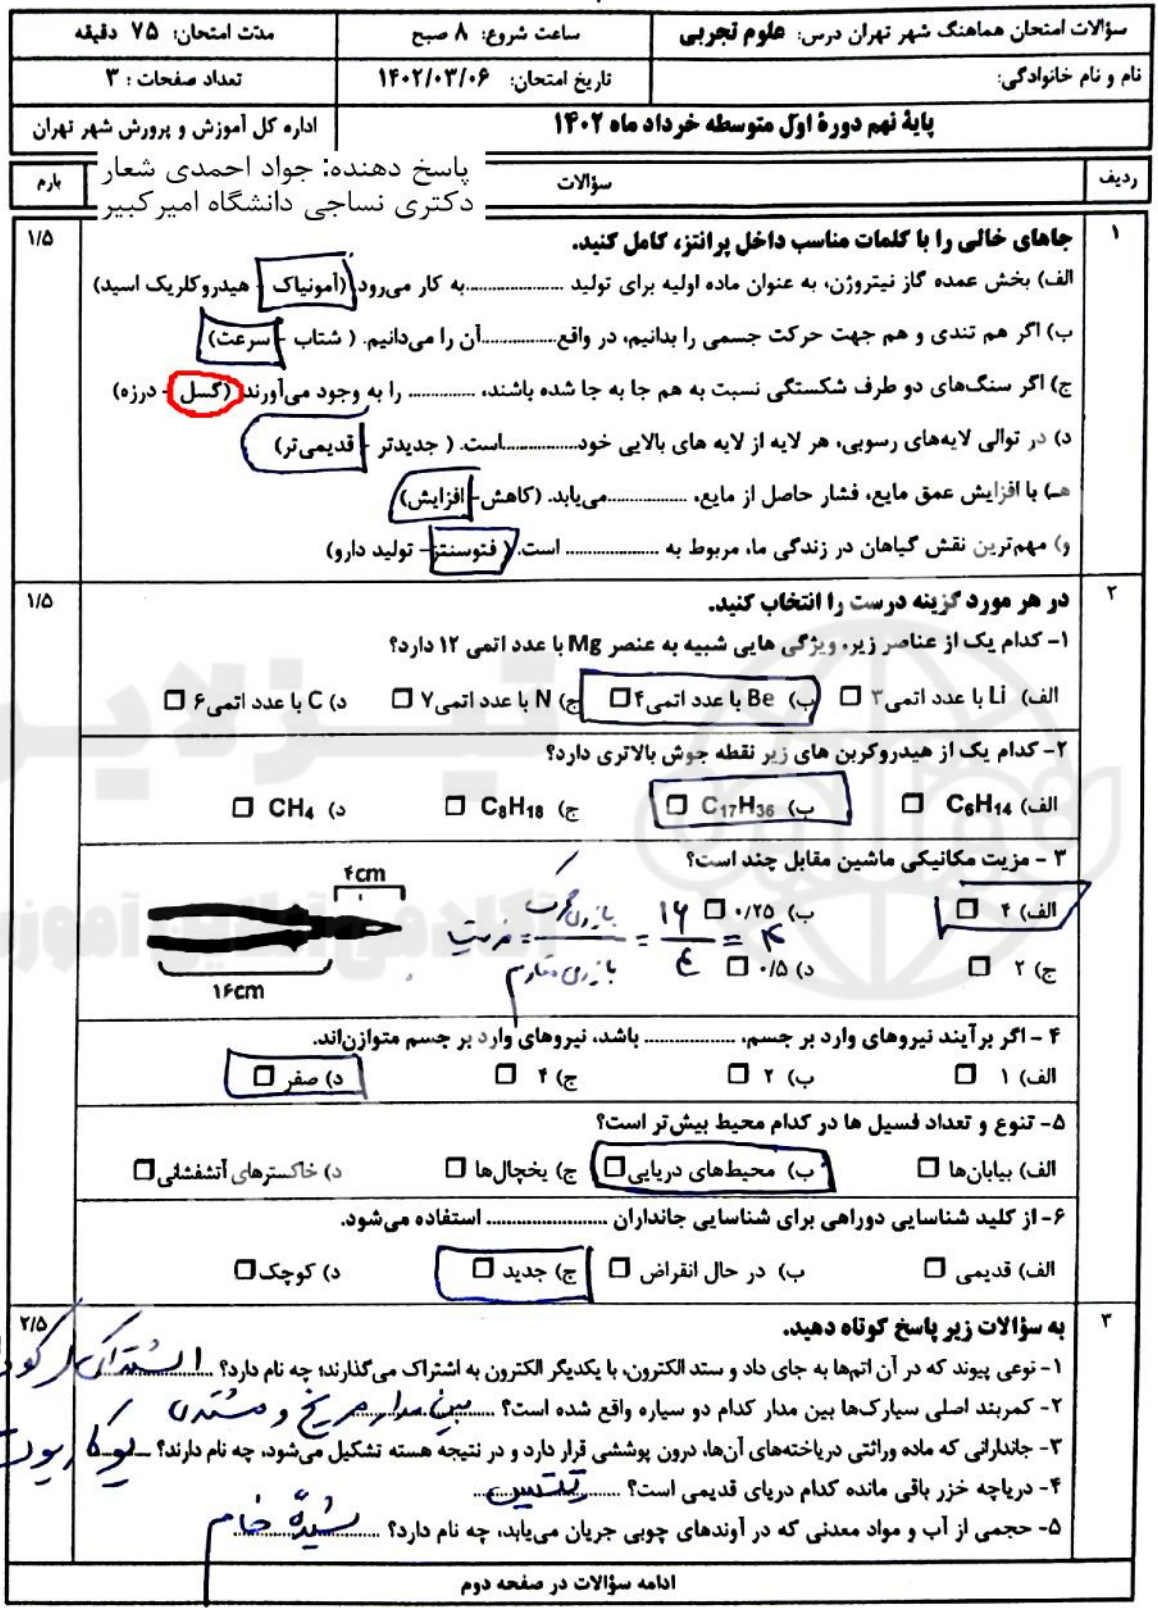 سؤالات امتحان هماهنگ شهر تهران درس: علوم تجربی
ساعت شروع: ۸ صبح
مدت امتحان: ۷۵ دقیقه
نام و نام خانوادگی:
تاریخ امتحان: ۱۴۰۲/۰۳/۰۶
تعداد صفحات : ۳
پایهٔ نهم دورهٔ اول متوسطه خرداد ماه ۱۴۰۲
اداره کل آموزش و پرورش شهر تهران
پاسخ دهنده: جواد احمدی شعار
دکتری نساجی دانشگاه امیرکبیر
ردیف
سؤالات
بارم
۱
جاهای خالی را با کلمات مناسب داخل پرانتز، کامل کنید.
۱/۵
الف) بخش عمده گاز نیتروژن، به عنوان ماده اولیه برای تولید ....................به کار می‌رود. (آمونیاک - هیدروکلریک اسید)
ب) اگر هم تندی و هم جهت حرکت جسمی را بدانیم، در واقع...............آن را می‌دانیم. ( شتاب - سرعت)
ج) اگر سنگ‌های دو طرف شکستگی نسبت به هم جا به جا شده باشند، ............. را به وجود می‌آورند (گسل - درزه)
د) در توالی لایه‌های رسوبی، هر لایه از لایه های بالایی خود...............است. ( جدیدتر - قدیمی‌تر)
هـ) با افزایش عمق مایع، فشار حاصل از مایع، ................می‌یابد. (کاهش- افزایش)
و) مهم‌ترین نقش گیاهان در زندگی ما، مربوط به .................. است. ( فتوسنتز- تولید دارو)
۲
در هر مورد گزینه درست را انتخاب کنید.
۱/۵
۱- کدام یک از عناصر زیر، ویژگی هایی شبیه به عنصر Mg با عدد اتمی ۱۲ دارد؟
الف) Li با عدد اتمی ۳ ☐ ب) Be با عدد اتمی ۴ ☐ ج) N با عدد اتمی ۷ ☐ د) C با عدد اتمی ۶ ☐
۲- کدام یک از هیدروکربن های زیر نقطه جوش بالاتری دارد؟
الف) C₆H₁₄ ☐ ب) C₁₇H₃₆ ☐ ج) C₈H₁₈ ☐ د) CH₄ ☐
۳ - مزیت مکانیکی ماشین مقابل چند است؟
الف) ۴ ☐ ب) ۰/۲۵ ☐
ج) ۲ ☐ د) ۰/۵ ☐
۴cm
۱۶cm
مزیت = بازوی محرک / بازوی مقاوم = ۱۶ / ۴ = ۴
۴ - اگر برآیند نیروهای وارد بر جسم، ................. باشد، نیروهای وارد بر جسم متوازن‌اند.
الف) ۱ ☐ ب) ۲ ☐ ج) ۴ ☐ د) صفر ☐
۵- تنوع و تعداد فسیل ها در کدام محیط بیش‌تر است؟
الف) بیابان‌ها ☐ ب) محیط‌های دریایی ☐ ج) یخچال‌ها ☐ د) خاکسترهای آتشفشانی ☐
۶- از کلید شناسایی دوراهی برای شناسایی جانداران ....................... استفاده می‌شود.
الف) قدیمی ☐ ب) در حال انقراض ☐ ج) جدید ☐ د) کوچک ☐
۳
به سؤالات زیر پاسخ کوتاه دهید.
۲/۵
۱- نوعی پیوند که در آن اتم‌ها به جای داد و ستد الکترون، با یکدیگر الکترون به اشتراک می‌گذارند؛ چه نام دارد؟ اشتراکی
۲- کمربند اصلی سیارک‌ها بین مدار کدام دو سیاره واقع شده است؟ بین مدار مریخ و مشتری
۳- جاندارانی که ماده وراثتی دریاخته‌های آن‌ها، درون پوششی قرار دارد و در نتیجه هسته تشکیل می‌شود، چه نام دارند؟ یوکاریوت
۴- دریاچه خزر باقی مانده کدام دریای قدیمی است؟ تتیس
۵- حجمی از آب و مواد معدنی که در آوندهای چوبی جریان می‌یابد، چه نام دارد؟ شیرهٔ خام
ادامه سؤالات در صفحه دوم